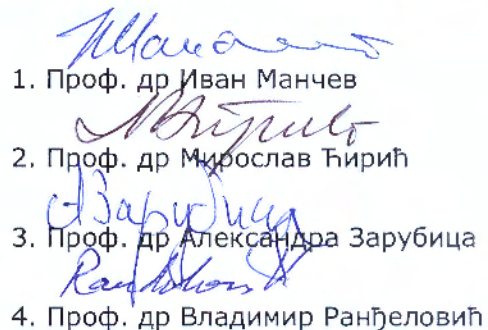 1. Проф. др Иван Манчев
2. Проф. др Мирослав Ћирић
3. Проф. др Александра Зарубица
4. Проф. др Владимир Ранђеловић